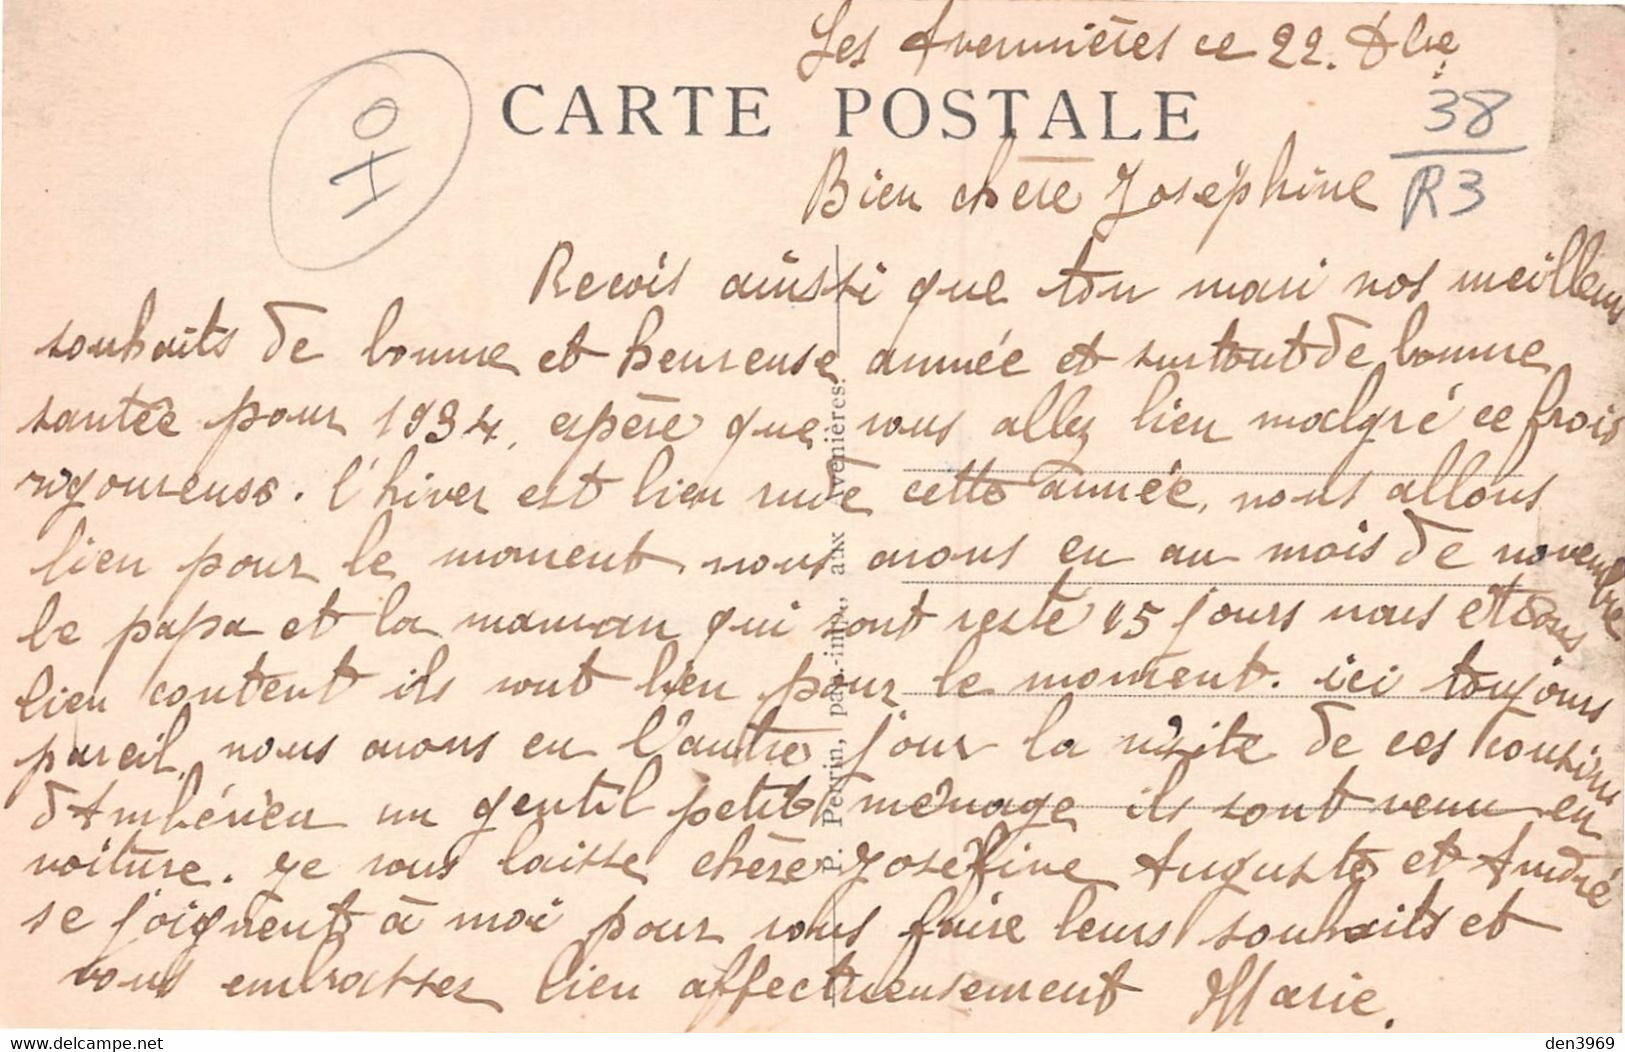 Les Avennières ce 22. Dbre
CARTE POSTALE
HO
38
R3
Bien chère Joséphine
Recois ainsi que ton mari nos meilleurs
souhaits de bonne et heureuse année et surtout de bonne
santée pour 1934, espère que vous allez bien malgré ce frois
rigoureuse. l'hiver est bien rude cette année, nous allons
bien pour le moment. nous avons eu au mois de novembre
le papa et la maman qui sont resté 15 jours nous étions
bien content ils vont bien pour le moment. ici toujours
pareil, nous avons eu l'autre jour la visite de ces cousins
d'Ambérieu un gentil petit ménage ils sont venu en
voiture. je vous laisse chère Joséfine Auguste et André
se joignent à moi pour vous faire leurs souhaits et
vous embrasser bien affectueusement Marie.
P. Perrin, pap.-imp., aux Avenières.
den3969